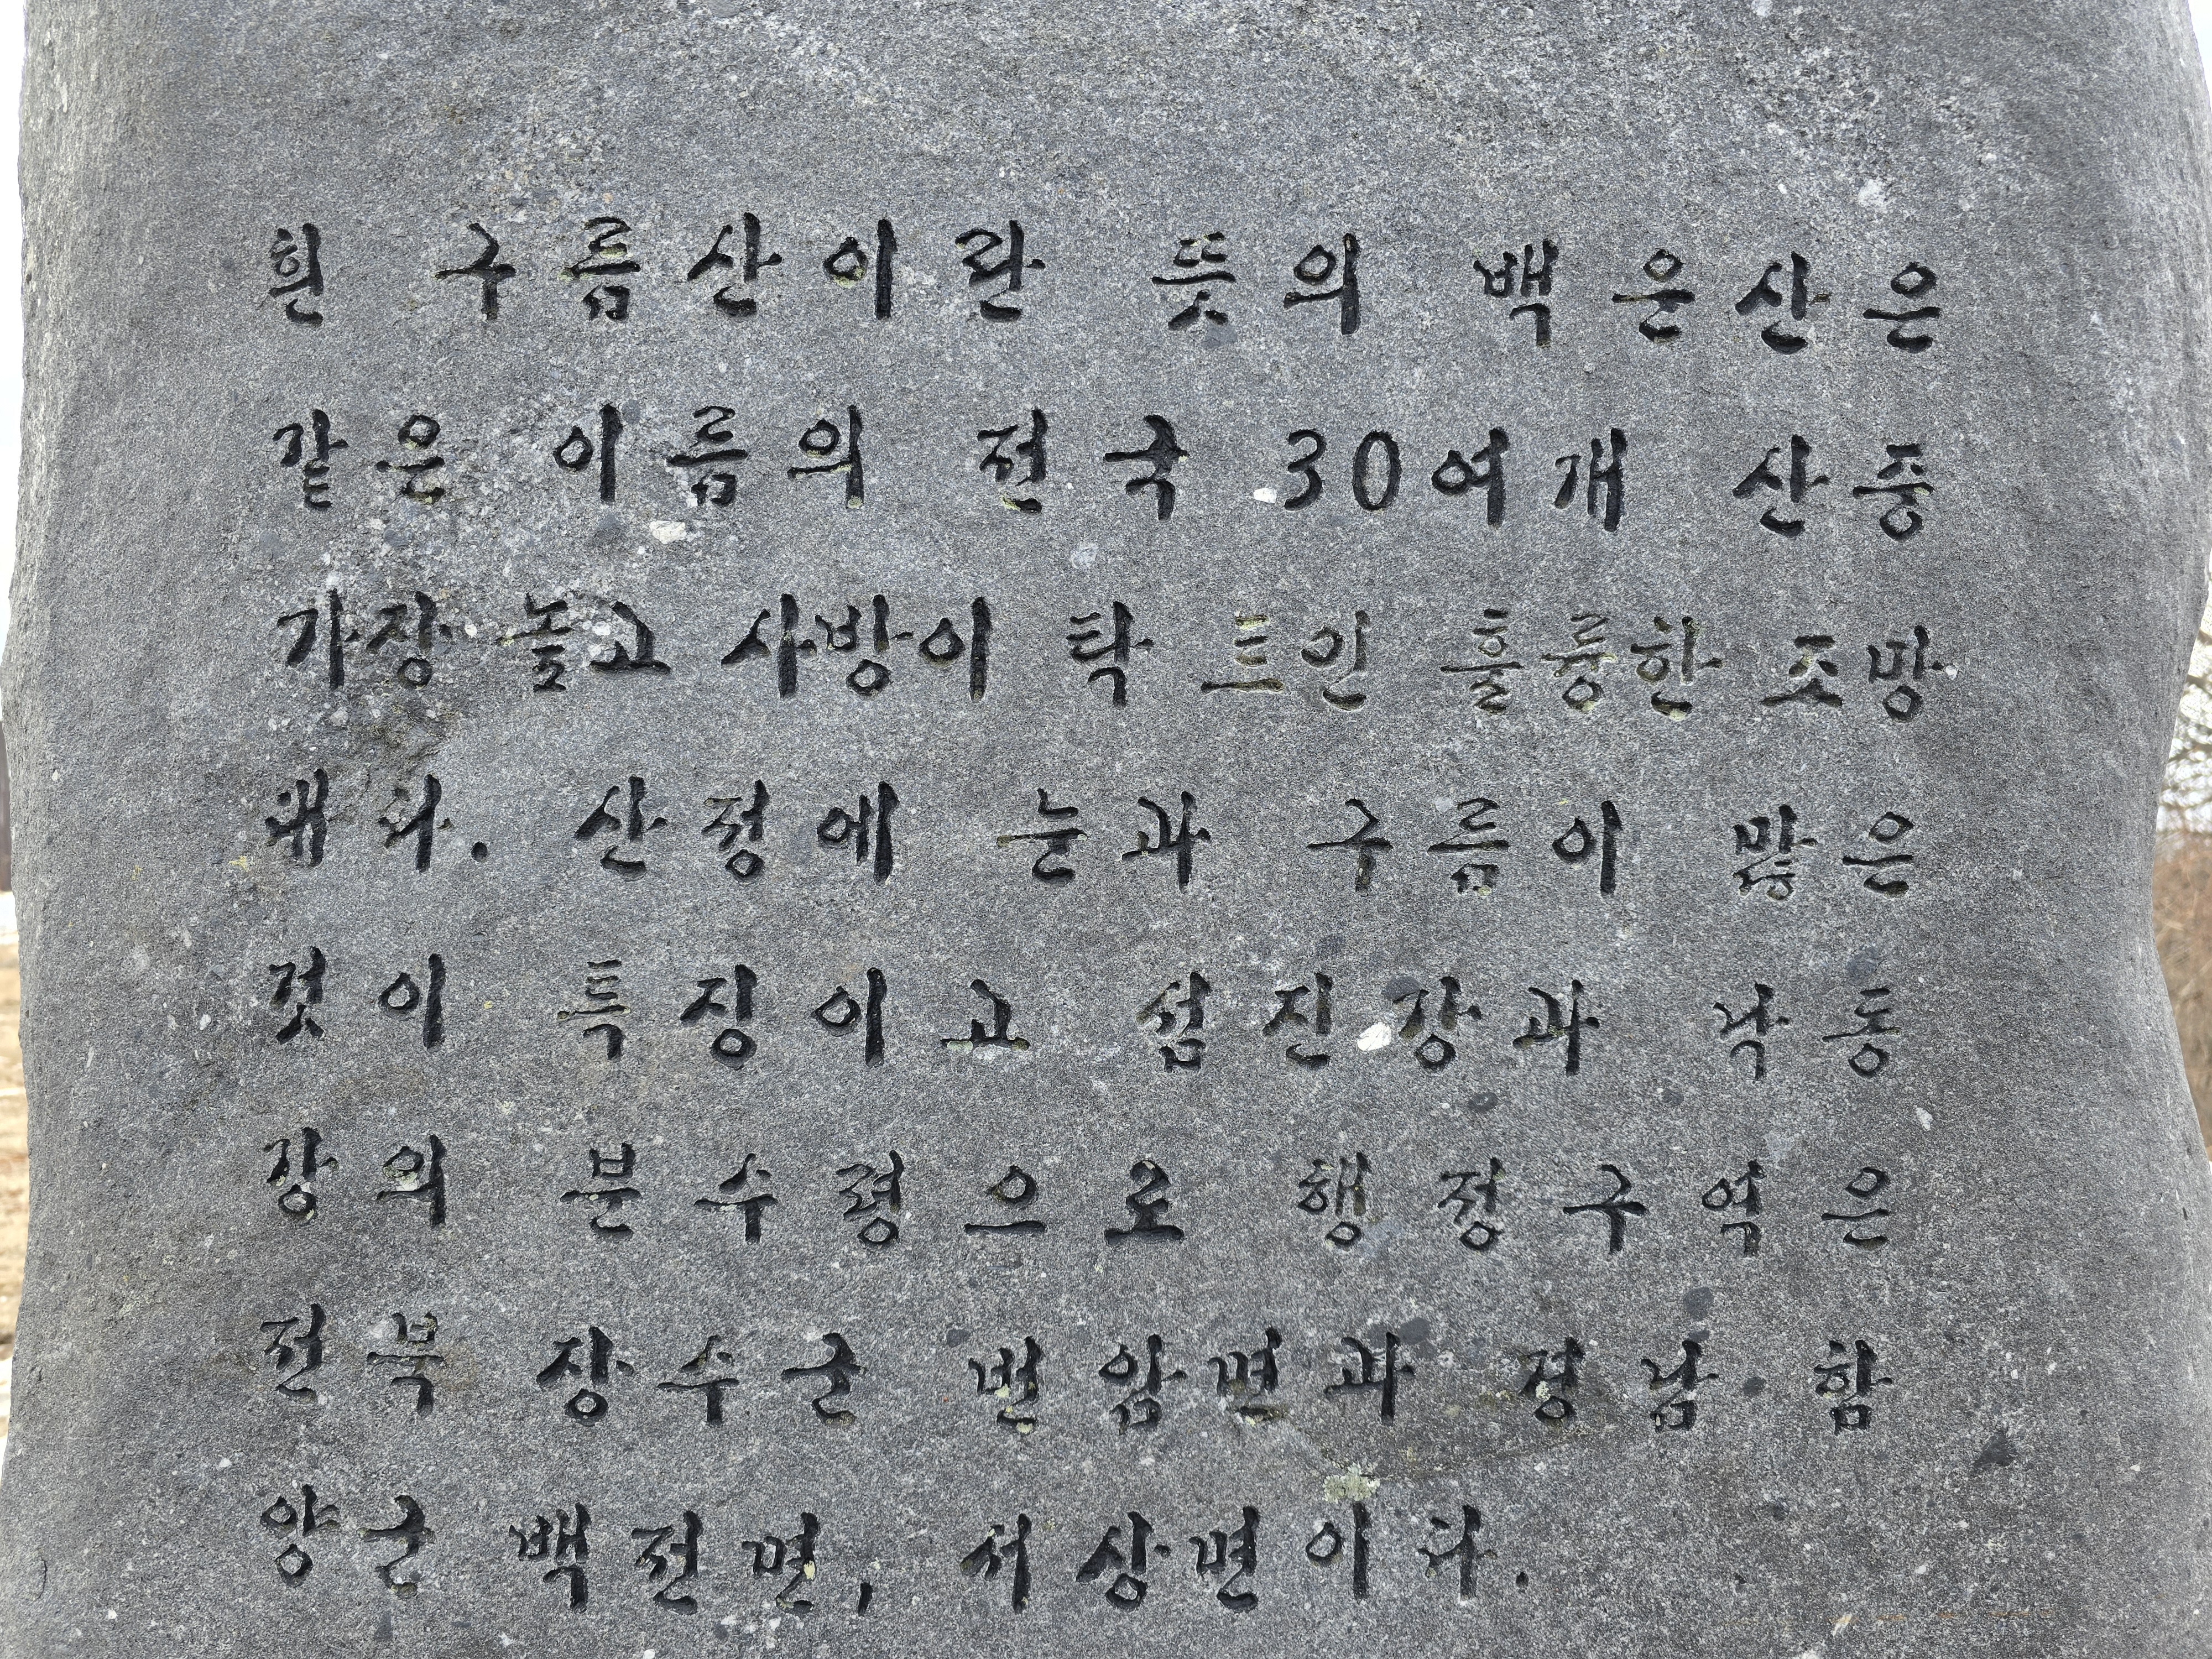 흰 구름산이란 뜻의 백운산은
같은 이름의 전국 30여개 산중
가장 높고 사방이 탁 트인 훌륭한 조망
대다. 산정에 눈과 구름이 많은
것이 특징이고 섬진강과 낙동
강의 분수령으로 행정구역은
전북 장수군 번암면과 경남 함
양군 백전면, 서상면이다.